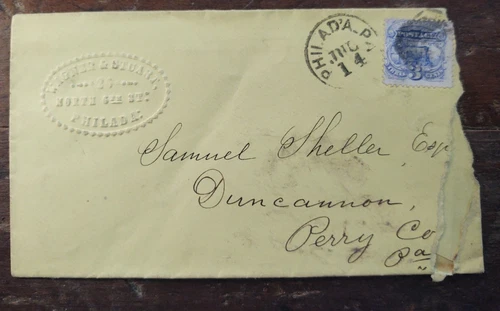 NORTH 6TH ST.
PHILADA.
PHILAD'A. PA.
14
POSTAGE
3
Samuel Sheller, Esq
Duncannon,
Perry Co
Pa